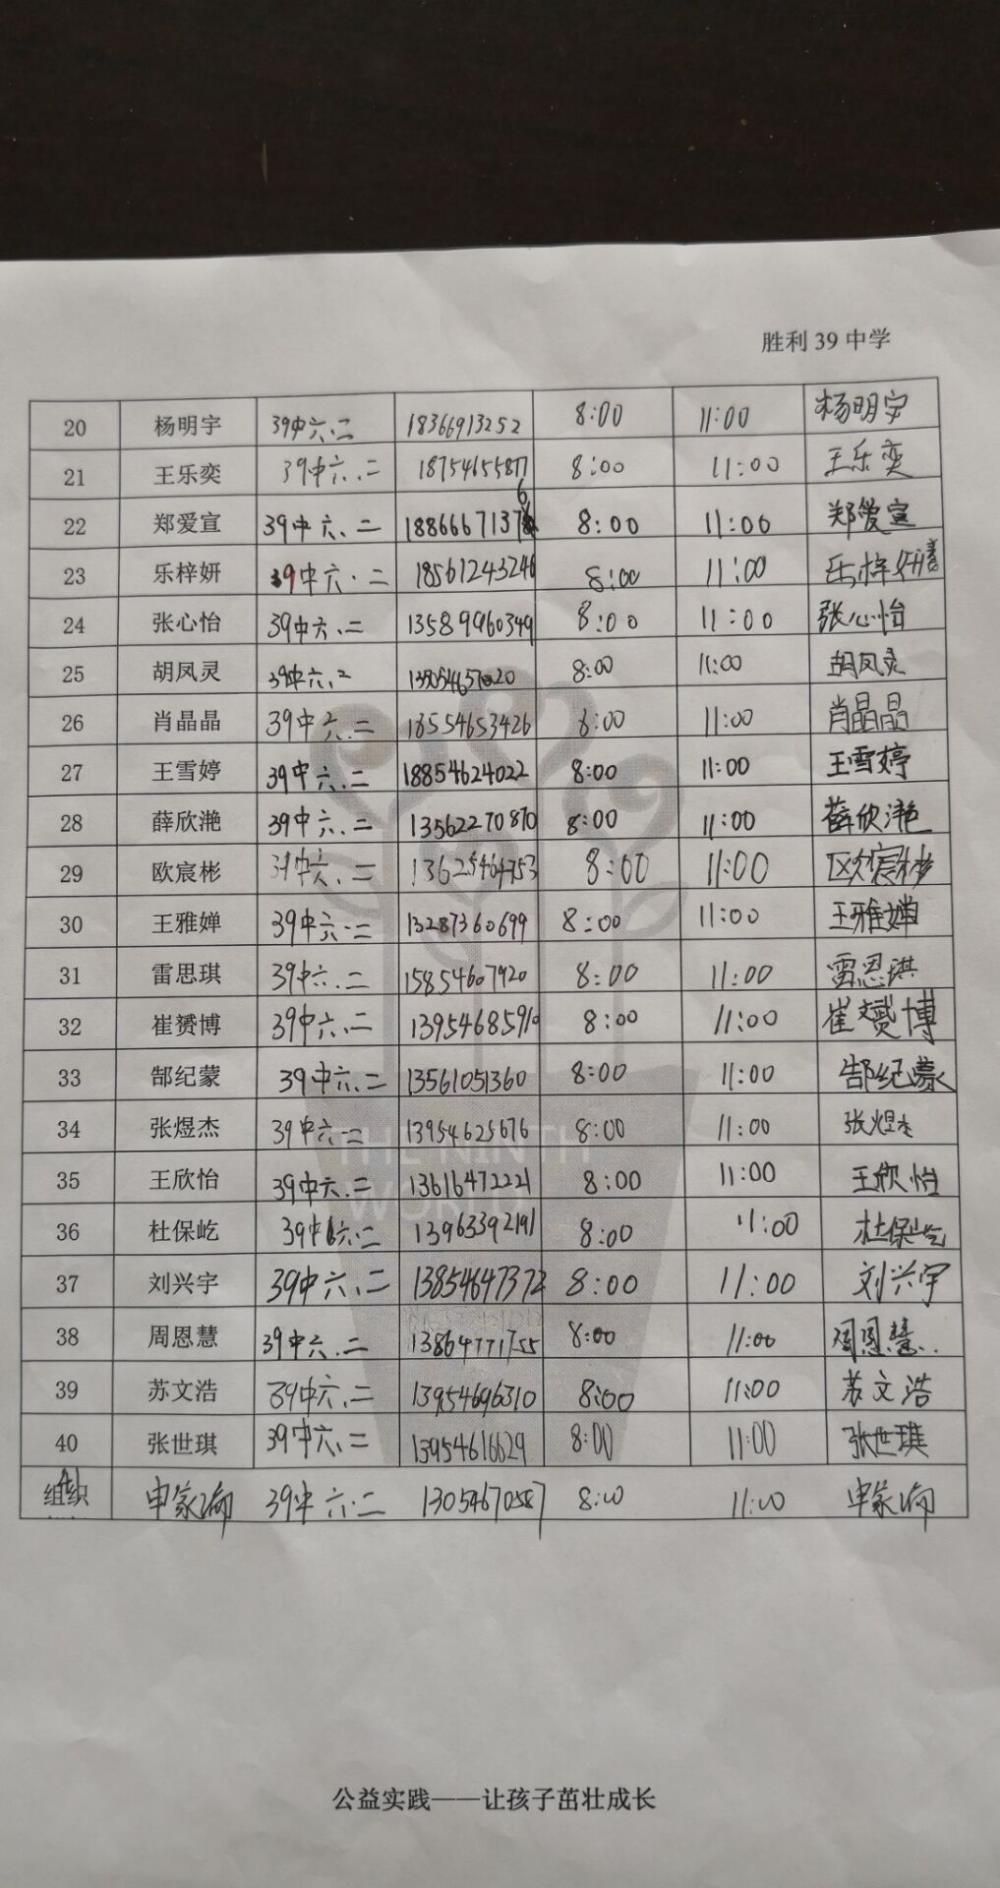 胜利 39 中学
20 杨明宇 39中六、二 18366913252 8:00 11:00 杨明宇
21 王乐奕 39中六、二 18754655877 8:00 11:00 王乐奕
22 郑爱宣 39中六、二 8:00 11:00 郑爱宣
23 乐梓妍 39中六、二 18561243246 8:00 11:00 乐梓妍
24 张心怡 39中六、二 13589960349 8:00 11:00 张心怡
25 胡凤灵 39中六、2 8:00 11:00 胡凤灵
26 肖晶晶 39中六、二 18554653426 8:00 11:00 肖晶晶
27 王雪婷 39中六、二 18854624022 8:00 11:00 王雪婷
28 薛欣滟 39中六、二 13562270870 8:00 11:00 薛欣滟
29 欧宸彬 39中六、二 8:00 11:00 欧宸彬
30 王雅婵 39中六、二 13287360699 8:00 11:00 王雅婵
31 雷思琪 39中六、二 15854607920 8:00 11:00 雷思琪
32 崔赟博 39中六、二 13954685910 8:00 11:00 崔赟博
33 郜纪蒙 39中六、二 13561051360 8:00 11:00 郜纪蒙
34 张煜杰 39中六、二 13954625676 8:00 11:00 张煜杰
35 王欣怡 39中六、二 13616472221 8:00 11:00 王欣怡
36 杜保屹 39中六、二 13963392191 8:00 11:00 杜保屹
37 刘兴宇 39中六、二 13854647372 8:00 11:00 刘兴宇
38 周恩慧 39中六、二 13864771755 8:00 11:00 周恩慧
39 苏文浩 39中六、二 13954696310 8:00 11:00 苏文浩
40 张世琪 39中六、二 13954616629 8:00 11:00 张世琪
组织 申家瑜 39中六、二 13054670587 8:00 11:00 申家瑜
THE NINTH
WORLD
公益实践——让孩子茁壮成长